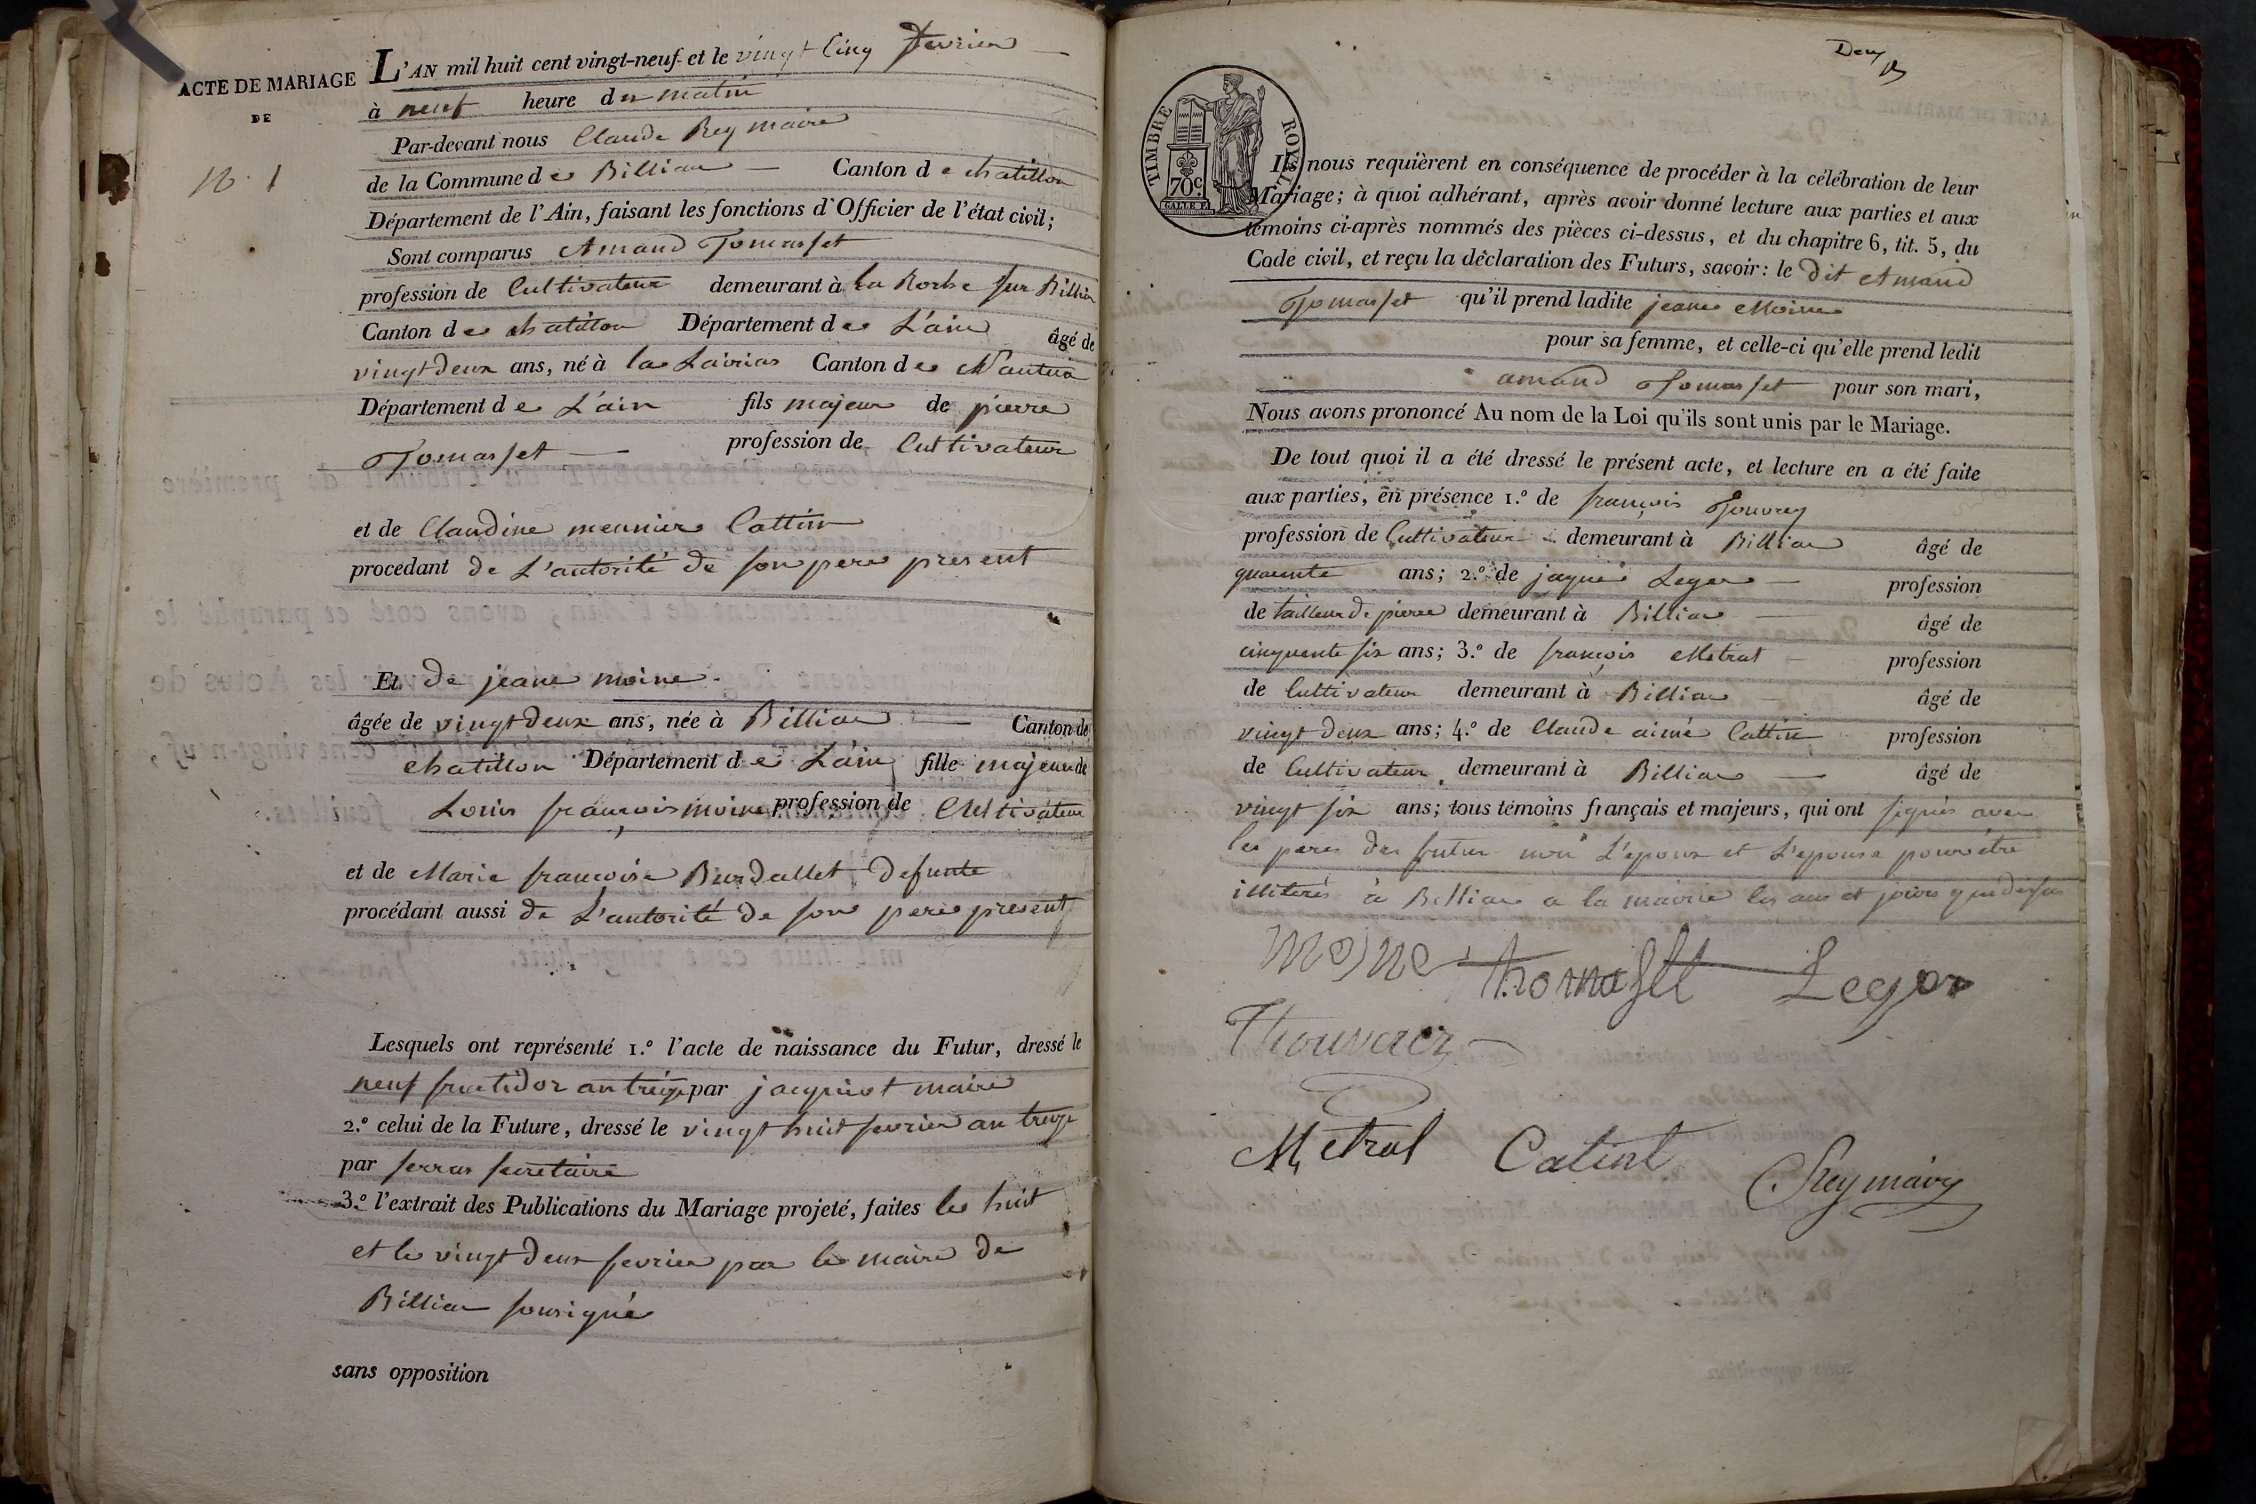 ACTE DE MARIAGE
DE
N.º 1
L'AN mil huit cent vingt-neuf et le vingt Cinq fevrier
à neuf heure du matin
Par-devant nous Claude Rey maire
de la Commune de Billiae Canton de chatillon
Département de l'Ain, faisant les fonctions d'Officier de l'état civil;
Sont comparus Amand Tomasset
profession de Cultivateur demeurant à la Roche sur Billiae
Canton de chatillon Département de L'ain âgé de
vingt deux ans, né à Canton de Nantua
Département de L'ain fils majeur de pierre
Tomasset profession de Cultivateur
et de Claudine meunier Cattin
procedant de L'autorité de son pere present
Et de jeane moine
âgée de vingt deux ans, née à Billiae Canton de
chatillon Département de L'ain fille majeur de
Louis françois moine profession de Cultivateur
et de Marie françoise Burdallet defunte
procédant aussi de L'autorité de son pere present
Lesquels ont représenté 1.º l'acte de naissance du Futur, dressé le
neuf fructidor an treize par jacquinot maire
2.º celui de la Future, dressé le vingt huit fevrier an treize
par ferras secretaire
3.º l'extrait des Publications du Mariage projeté, faites le huit
et le vingt deux fevrier par le maire de
Billiae sousigné
sans opposition
Deux
TIMBRE ROYAL
70 C.
Ils nous requièrent en conséquence de procéder à la célébration de leur
Mariage; à quoi adhérant, après avoir donné lecture aux parties et aux
témoins ci-après nommés des pièces ci-dessus, et du chapitre 6, tit. 5, du
Code civil, et reçu la déclaration des Futurs, savoir: le dit Amand
Tomasset qu'il prend ladite jeane Moine
pour sa femme, et celle-ci qu'elle prend ledit
amand Tomasset pour son mari,
Nous avons prononcé Au nom de la Loi qu'ils sont unis par le Mariage.
De tout quoi il a été dressé le présent acte, et lecture en a été faite
aux parties, en présence 1.º de françois Touvrey
profession de Cultivateur demeurant à Billiae âgé de
quarente ans; 2.º de jaque Leger profession
de tailleur de pierre demeurant à Billiae âgé de
cinquente six ans; 3.º de françois Metral profession
de Cultivateur demeurant à Billiae âgé de
vingt deux ans; 4.º de Claude aimé Cattin profession
de Cultivateur demeurant à Billiae âgé de
vingt six ans; tous témoins français et majeurs, qui ont signés avec
les peres des futur non L'epoux et L'epouse pour être
illiterés à Billiae a la mairie les ans et jours que dessus
moine thomasset Leger
Thouverez
Metral Catint C Rey maire